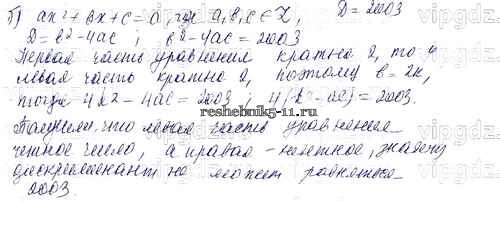 б) ax²+bx+c=0, где a,b,c∈Z, D=2003
D=b²-4ac ; b²-4ac=2003
Первая часть уравнения кратна 2, то и
левая часть кратна 2, поэтому b=2k,
тогда 4k²-4ac=2003 / 4(k²-ac)=2003.
reshebnik5-11.ru
Получили, что левая часть уравнения
четное число, а правая - нечетное, значит
дискриминант не может равняться
2003.
vipgdz.com